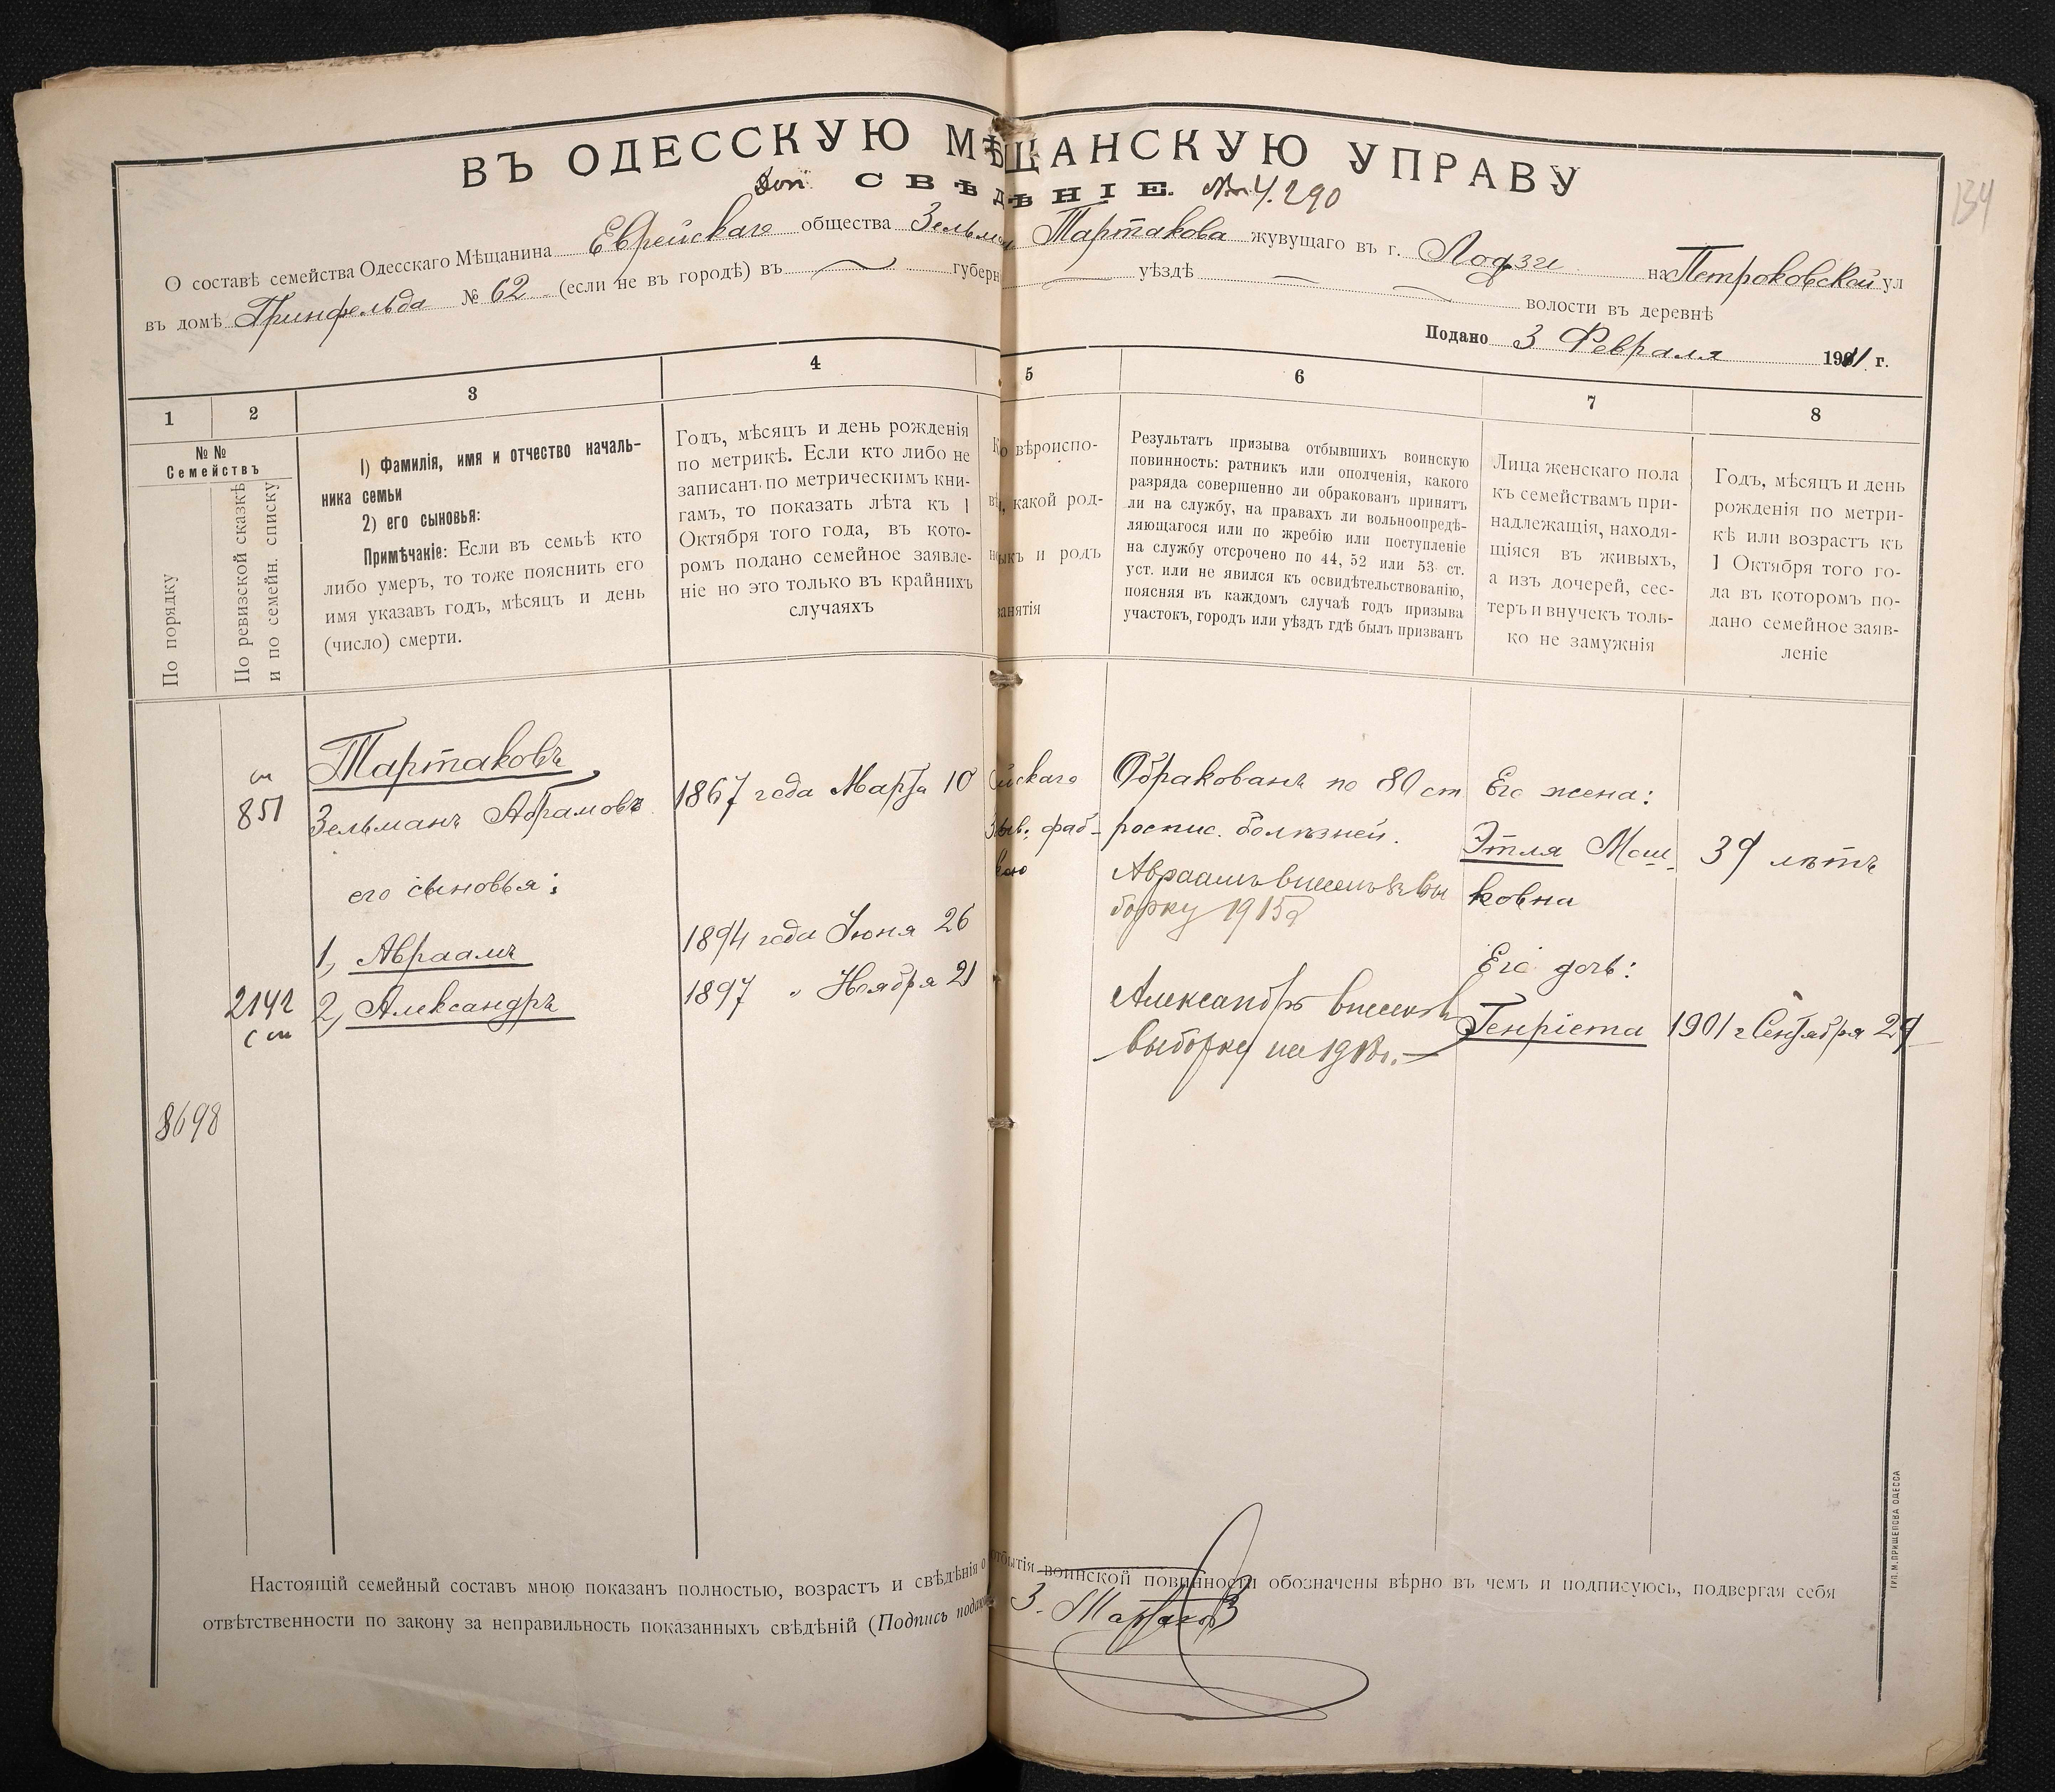 ВЪ ОДЕССКУЮ МѢЩАНСКУЮ УПРАВУ
Доп. СВѢДѢНІЕ. № 4.290
134
О составѣ семейства Одесскаго Мѣщанина Еврейскаго общества Зельмана Тартакова жувущаго въ г. Лодзи на Петроковской ул
въ домѣ Гринфельда № 62 (если не въ городѣ) въ губерн уѣздѣ волости въ деревнѣ
Подано 3 Февраля 1911 г.
1 2 3 4 5 6 7 8
№ №
Семействъ
По порядку
По ревизской сказкѣ
и по семейн. списку
1) Фамилія, имя и отчество началь-
ника семьи
2) его сыновья:
Примѣчаніе: Если въ семьѣ кто
либо умеръ, то тоже пояснить его
имя указавъ годъ, мѣсяцъ и день
(число) смерти.
Годъ, мѣсяцъ и день рожденія
по метрикѣ. Если кто либо не
записанъ по метрическимъ кни-
гамъ, то показать лѣта къ 1
Октября того года, въ кото-
ромъ подано семейное заявле-
ніе но это только въ крайнихъ
случаяхъ
вѣроиспо-
какой род-
и родъ
занятія
Результатъ призыва отбывшихъ воинскую
повинность: ратникъ или ополченія, какого
разряда совершенно ли обракованъ принятъ
ли на службу, на правахъ ли вольноопредѣ-
ляющагося или по жребію или поступленіе
на службу отсрочено по 44, 52 или 53 ст.
уст. или не явился къ освидѣтельствованію,
поясняя въ каждомъ случаѣ годъ призыва
участокъ, городъ или уѣздъ гдѣ былъ призванъ
Лица женскаго пола
къ семействамъ при-
надлежащія, находя-
щіяся въ живыхъ,
а изъ дочерей, сес-
теръ и внучекъ толь-
ко не замужнія
Годъ, мѣсяцъ и день
рожденія по метри-
кѣ или возрастъ къ
1 Октября того го-
да въ которомъ по-
дано семейное заяв-
леніе
851
2142
8698
Тартаковъ
Зельманъ Абрамовъ
его сыновья:
1, Авраамъ
2, Александръ
1867 года Марта 10
1894 года Іюня 26
1897 " Ноября 21
йскаго
фаб-
Обракованъ по 80 ст
роспис. болѣзней.
Авраамъ внесенъ въ вы
борку 1915г
Александръ внесенъ
выборку на 1918г.
Его жена:
Этля Мош-
ковна
Его дочь:
Генріета
39 лѣтъ
1901 г Сентября 29
Настоящій семейный составъ мною показанъ полностью, возрастъ и свѣдѣнія о отбытія воинской повинности обозначены вѣрно въ чемъ и подписуюсь, подвергая себя
отвѣтственности по закону за неправильность показанныхъ свѣдѣній (Подпись З. Тартаковъ
ТИП. М. ПРИЩЕПОВА ОДЕССА